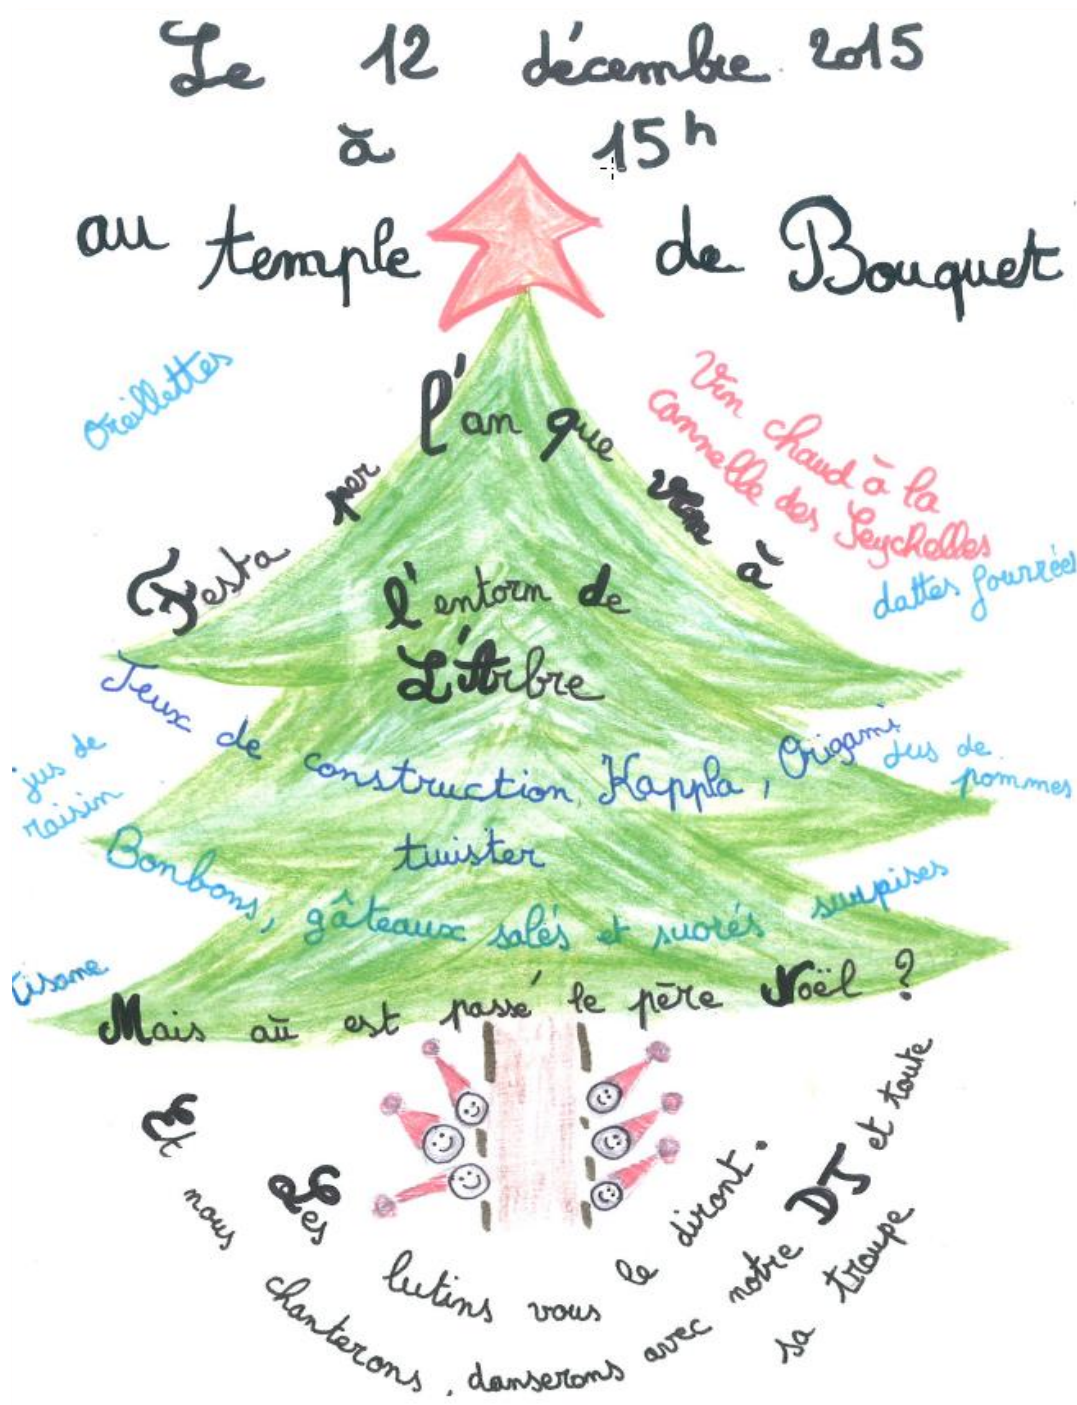 Le 12 décembre 2015
à 15h
au temple de Bouquet
Oreillettes
Vin chaud à la
cannelle des Seychelles
dattes fourrées
Festa per l'an que ven à
l'entorn de
L'Arbre
Jeux de construction, Kappla, Origami
twister
jus de
raisin
Jus de
pommes
Bonbons, gâteaux salés et sucrés surpises
tisane
Mais où est passé le père Noël ?
Les lutins vous le diront.
Et nous chanterons, danserons avec notre DJ et toute
sa troupe